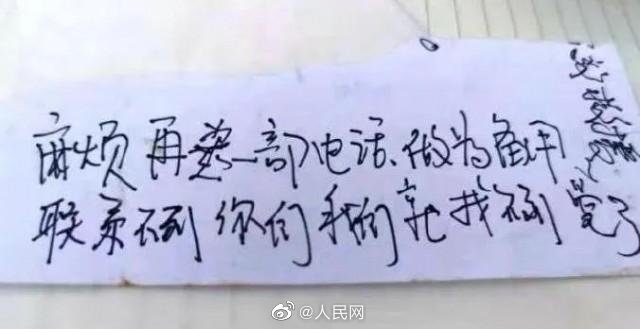 麻烦再装一部电话、做为备用
联系不到你们我们就找不到党了
@人民网